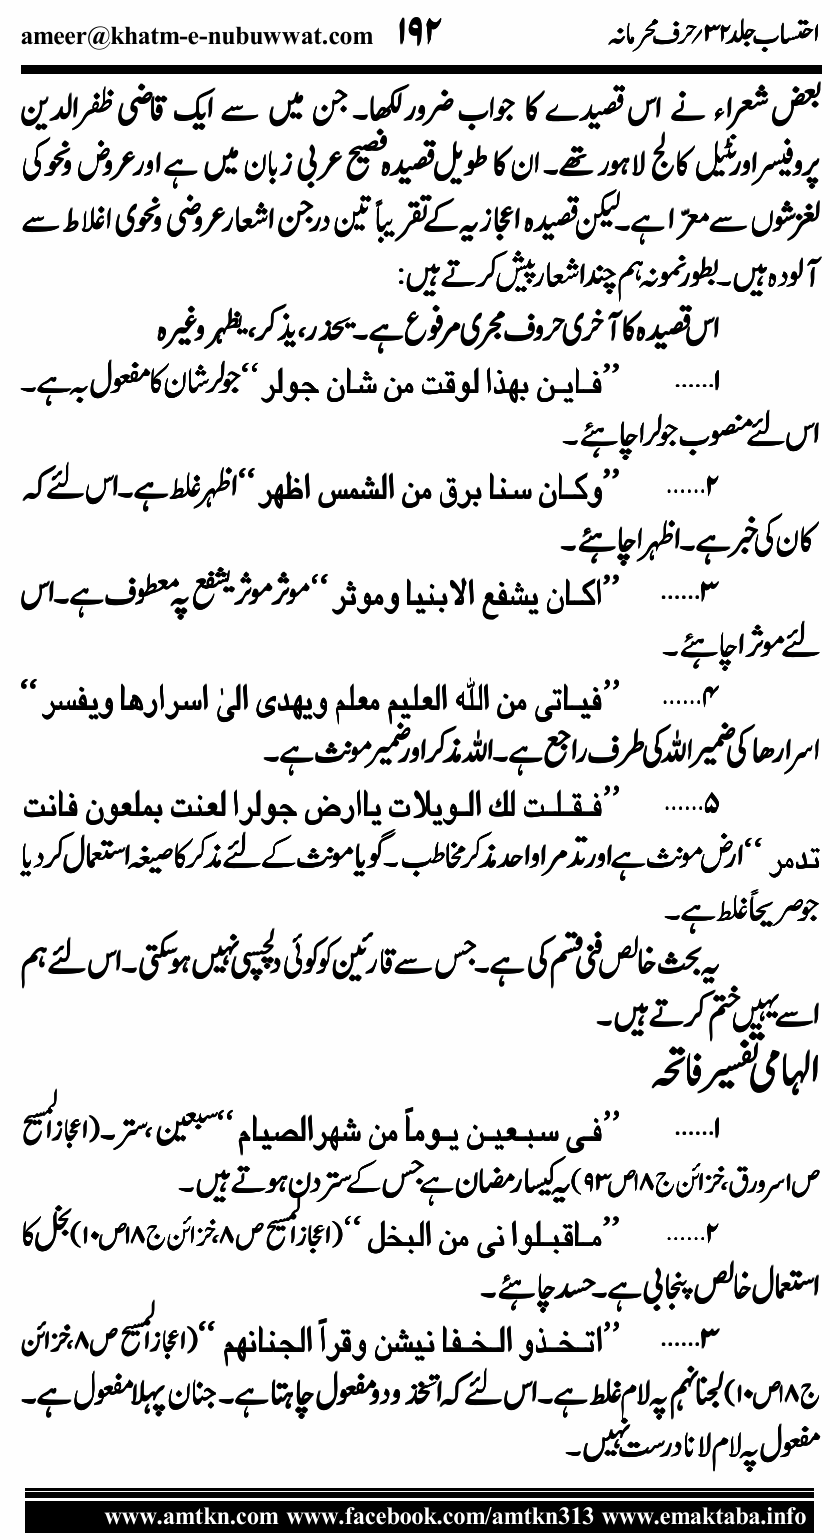 احتساب جلد ۳۲؍حرف محرمانہ ۱۹۲ ameer@khatm-e-nubuwwat.com
بعض شعراء نے اس قصیدے کا جواب ضرور لکھا۔ جن میں سے ایک قاضی ظفر الدین
پروفیسر اورنٹیل کالج لاہور تھے۔ ان کا طویل قصیدہ فصیح عربی زبان میں ہے اور عروض ونحو کی
لغزشوں سے معرّا ہے۔ لیکن قصیدہ اعجازیہ کے تقریباً تین درجن اشعار عروضی ونحوی اغلاط سے
آلودہ ہیں۔ بطور نمونہ ہم چند اشعار پیش کرتے ہیں:
اس قصیدہ کا آخری حروف مجری مرفوع ہے۔ یحذر، یذکر، یظہر وغیرہ
۱...... ’’فاین بھذا لوقت من شان جولر‘‘ جولر شان کا مفعول بہ ہے۔
اس لئے منصوب جولرا چاہئے۔
۲...... ’’وکان سنا برق من الشمس اظھر‘‘ اظہر غلط ہے۔ اس لئے کہ
کان کی خبر ہے۔ اظہرا چاہئے۔
۳...... ’’اکان یشفع الابنیا وموثر‘‘ موثر موثر یشفع پہ معطوف ہے۔ اس
لئے موثرا چاہئے۔
۴...... ’’فیاتی من اللہ العلیم معلم ویھدی الیٰ اسرارھا ویفسر‘‘
اسرارھا کی ضمیر اللہ کی طرف راجع ہے۔ اللہ مذکر اور ضمیر مونث ہے۔
۵...... ’’فقلت لك الویلات یاارض جولرا لعنت بملعون فانت
تدمر‘‘ ارض مونث ہے اور تدمر اواحد مذکر مخاطب۔ گویا مونث کے لئے مذکر کا صیغہ استعمال کر دیا
جو صریحاً غلط ہے۔
یہ بحث خالص فنی قسم کی ہے۔ جس سے قارئین کو کوئی دلچسپی نہیں ہوسکتی۔ اس لئے ہم
اسے یہیں ختم کرتے ہیں۔
الہامی تفسیر فاتحہ
۱...... ’’فی سبعین یوماً من شھر الصیام‘‘ سبعین، ستر۔ (اعجاز المسیح
ص اسرورق، خزائن ج۱۸ص۹۳) یہ کیسا رمضان ہے جس کے ستر دن ہوتے ہیں۔
۲...... ’’ماقبلوا نی من البخل‘‘ (اعجاز المسیح ص۸، خزائن ج۱۸ص۱۰) بخل کا
استعمال خالص پنجابی ہے۔ حسد چاہئے۔
۳...... ’’اتخذو الخفا نیشن وقراً الجنانھم‘‘ (اعجاز المسیح ص۸، خزائن
ج۱۸ص۱۰) لجنانہم پہ لام غلط ہے۔ اس لئے کہ اتخذ و دو مفعول چاہتا ہے۔ جنان پہلا مفعول ہے۔
مفعول پہ لام لانا درست نہیں۔
www.amtkn.com www.facebook.com/amtkn313 www.emaktaba.info